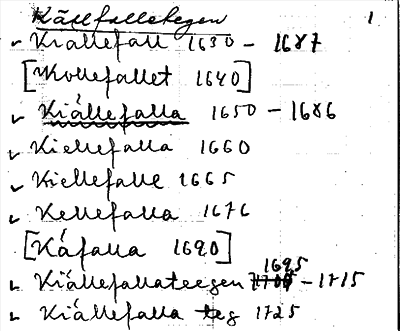 Källfallstegen 1
Kiällefall 1630 - 1687
[Kollefallet 1640]
Kiällefalla 1650 - 1686
Kiellefalla 1660
Kiellefalle 1665
Kellefalla 1676
[Kåfalla 1690]
1695
Kiällefallateegen 1700 - 1715
Kiällefalla teg 1725